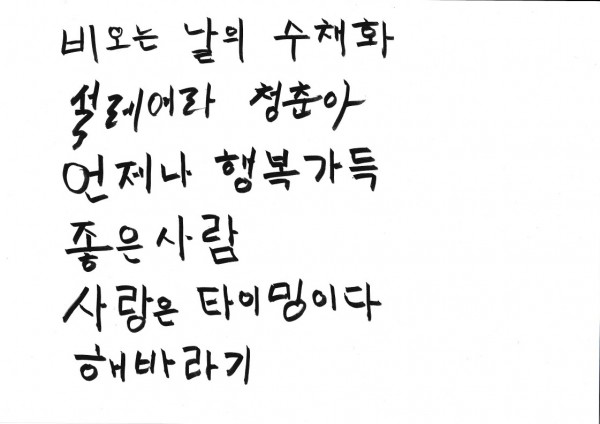 비오는 날의 수채화
설레어라 청춘아
언제나 행복가득
좋은사람
사랑은 타이밍이다
해바라기